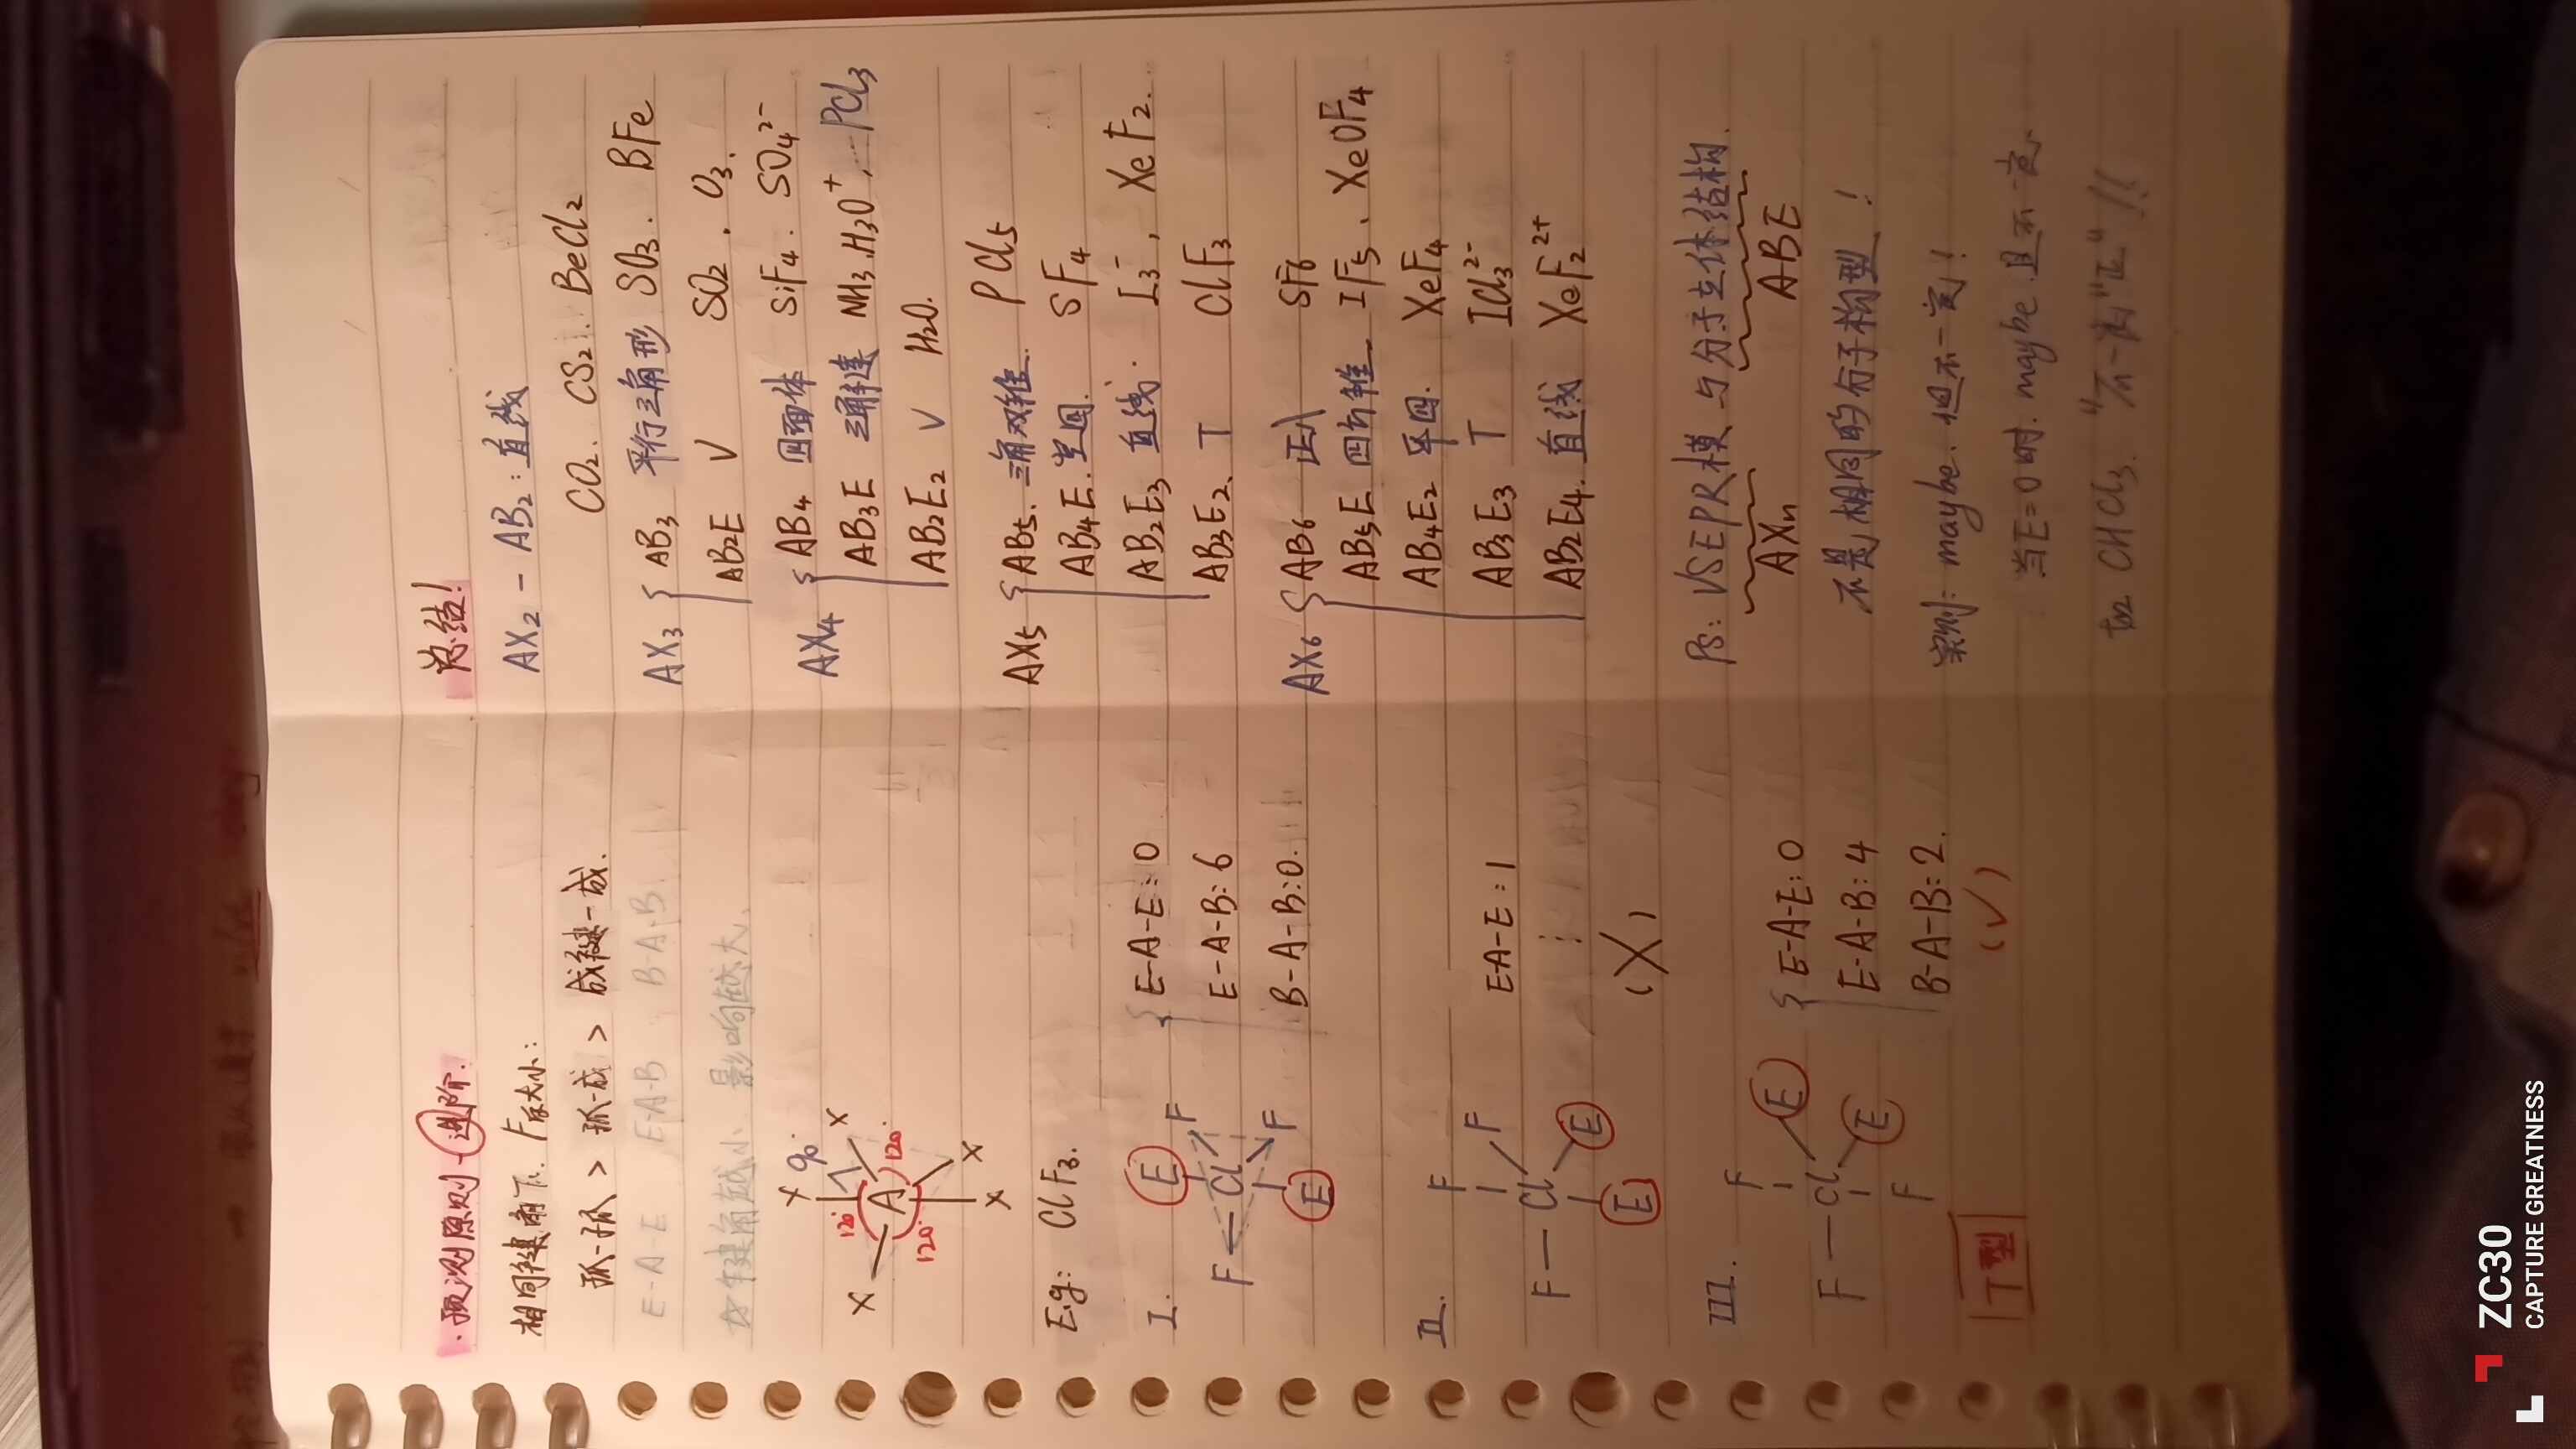 ·预测原则-进阶.
相同键角下. F斥大小:
孤-孤 > 孤-成 > 成键-成.
E-A-E E-A-B B-A-B
故键角越小. 影响越大.
X X X X X
A
90°
120° 120° 120°
E.g: ClF3.
I.
F Cl F F
E E
E-A-E: 0
E-A-B: 6
B-A-B: 0.
II.
F F Cl F
E E
E-A-E = 1
⋮
(X)
III.
F F Cl F
E E
E-A-E: 0
E-A-B: 4
B-A-B: 2.
(√)
T型
总结!
AX2 - AB2: 直线
CO2. CS2. BeCl2
AX3 { AB3 平行三角形 SO3. BFe
AB2E V SO2. O3.
AX4 { AB4 四面体 SiF4. SO4 2-
AB3E 三角锥 NH3. H3O+, PCl3
AB2E2 V H2O.
AX5 { AB5. 三角双锥. PCl5
AB4E. 变四. SF4
AB2E3 直线. I3-, XeF2.
AB3E2、T ClF3
AX6 { AB6 正八 SF6
AB5E 四方锥 IF5、XeOF4
AB4E2 平四. XeF4
AB3E3 T ICl3 2-
AB2E4. 直线 XeF2 2+
Ps: VSEPR模 与分子立体结构.
AXn ABE
不是相同的分子构型!
maybe. 但不一定!
当E=0时. maybe 且不一定.
如 CHCl3. "不一定" "正"!!
ZC30
CAPTURE GREATNESS